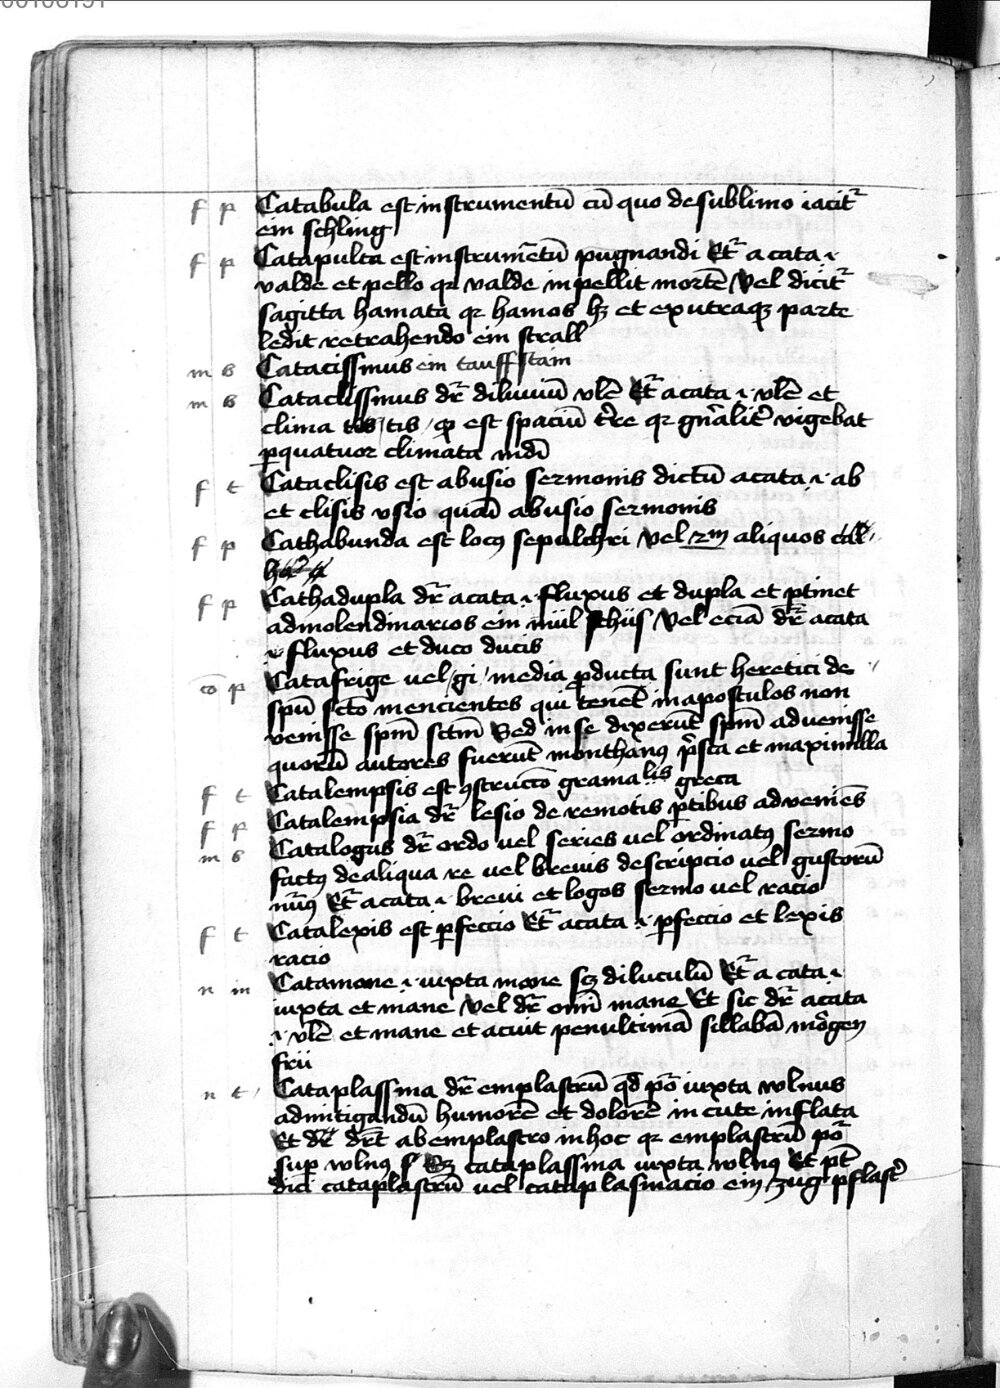 f p Catabula est instrumentū cū quo de sublimo iacit᷑
ein schling
f p Catapulta est instrumētū pugnandi Et᷑ a cata .i.
valde et pello qꝛ valde inpellit mortē Vel dicit᷑
sagitta hamata qꝛ hamos hꝫ et ex utraqꝫ parte
ledit retrahendo ein strall
m s Catacissmus ein tauff stain
m s Cataclissmus dr̄ diluuiū vlē Et᷑ a cata .i. vlē et
clima tis / qꝫ est spaciū t̄re qꝛ gn̄alit᷑ vigebat
ꝑ quatuor climata mūdi
f t Cataclisis est abusio sermonis dictū a cata .i. ab
et clisis vsio quasi abusio sermonis
f p Cathabunda est locꝰ sepulchri Vel ẜm aliquos
f p Cathadupla dr̄ a cata .i. fluxus et dupla et ptinet
ad molendinarios ein mül Vel eciā dr̄ a cata
.i. fluxus et duco ducis
cō p Catafrige uel / gi / media ꝓducta sunt heretici de
spū scto mencientes qui tenēt in apostulos non
venisse spm̄ sctm̄ Sed in se dixerūt spm̄ advenisse
quorū autores fuerūt monthanꝰ p̄sca et maximilla
f t Catalempsis est ꝯstruccō gramalis greca
f p Catalempsia dr̄ lesio de remotis ꝑtibus adveniēs
m s Catalogus dr̄ ordo vel series vel ordinatꝰ sermo
factꝰ de aliqua re vel brevis descripcio vel gustorū
Et᷑ a cata .i. brevi et logos sermo vel racio
f t Catalexis est ꝑfeccio Et᷑ a cata .i. ꝑfeccio et lexis
racio
n m Catamane .i. iuxta mane sꝫ diluculū Et᷑ a cata .i.
iuxta et mane Vel dr̄ omī mane Et sic dr̄ a cata
.i. vlē et mane et acuit penultimā sillabā mōgen
frü
n t Cataplassma dr̄ emplastrū qd̄ pō iuxta wlnus
ad mitigandū humorē et dolorē in cute inflata
Et dr̄t ab emplastro in hoc qꝛ emplastrū pōt
suꝑ wlnꝰ sꝫ cataplassma iuxta wlnꝰ Et pt̄
dici cataplastrū uel cataplasmacio ein zug pflast᷑